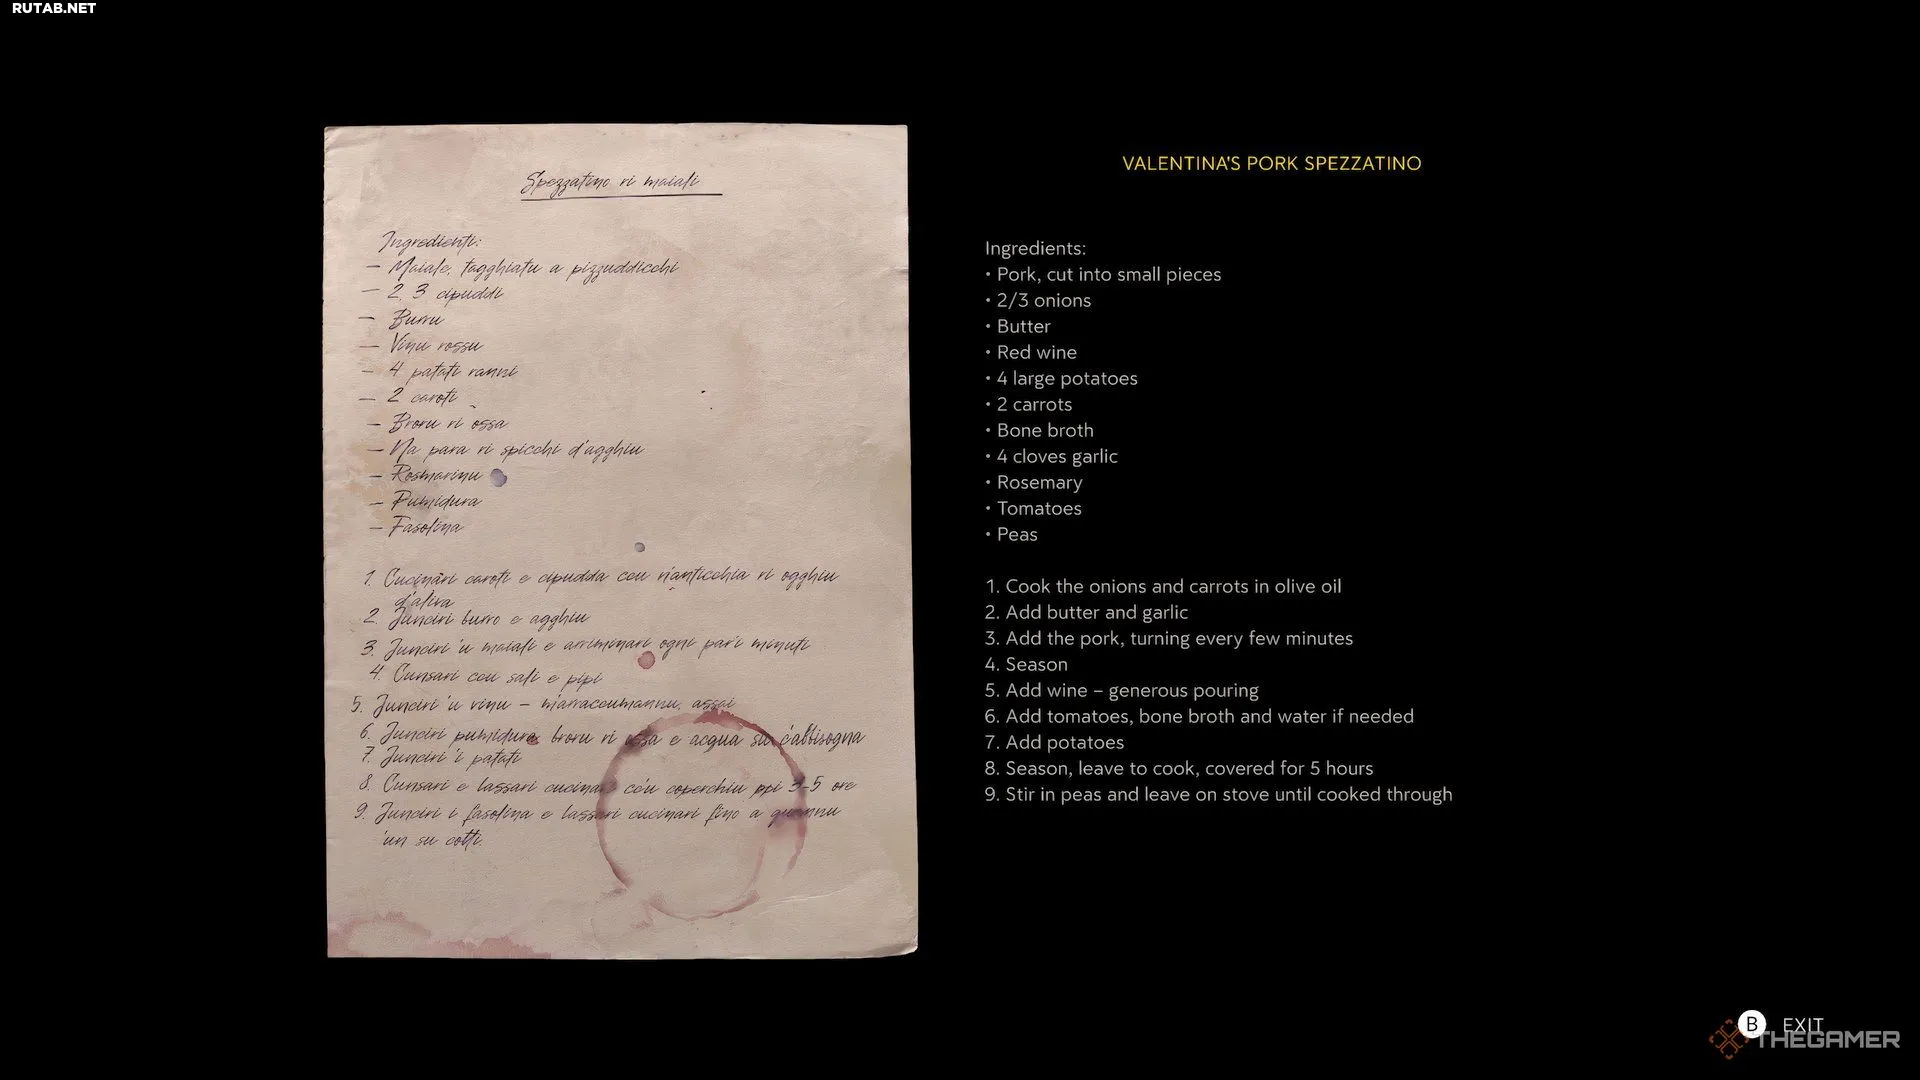 RUTAB.NET
Spezzatino ri maiali
Ingredienti:
— Maiale, tagghiatu a pizzuddicchi
— 2, 3 cipuddi
— Burru
— Vinu rossu
— 4 patati ranni
— 2 caroti
— Broru ri ossa
— Na para ri spicchi d'agghiu
— Rosmarinu
— Pumidura
— Fasolina
1. Cucinari caroti e cipudda cou n'anticchia ri ogghiu
d'aliva
2. Junciri burro e agghiu
3. Junciri 'u maiali e arriminari ogni pari minuti
4. Cunsari cou sali e pipi
5. Junciri 'u vinu – m'arraccumannu, assai
6. Junciri pumidura, broru ri ossa e acqua su c'abbisogna
7. Junciri 'i patati
8. Cunsari e lassari cucinari cóu coperchiu ppi 3-5 ore
9. Junciri i fasolina e lassari cucinari fino a quannu
'un su cotti.
VALENTINA'S PORK SPEZZATINO
Ingredients:
• Pork, cut into small pieces
• 2/3 onions
• Butter
• Red wine
• 4 large potatoes
• 2 carrots
• Bone broth
• 4 cloves garlic
• Rosemary
• Tomatoes
• Peas
1. Cook the onions and carrots in olive oil
2. Add butter and garlic
3. Add the pork, turning every few minutes
4. Season
5. Add wine – generous pouring
6. Add tomatoes, bone broth and water if needed
7. Add potatoes
8. Season, leave to cook, covered for 5 hours
9. Stir in peas and leave on stove until cooked through
B EXIT
THEGAMER